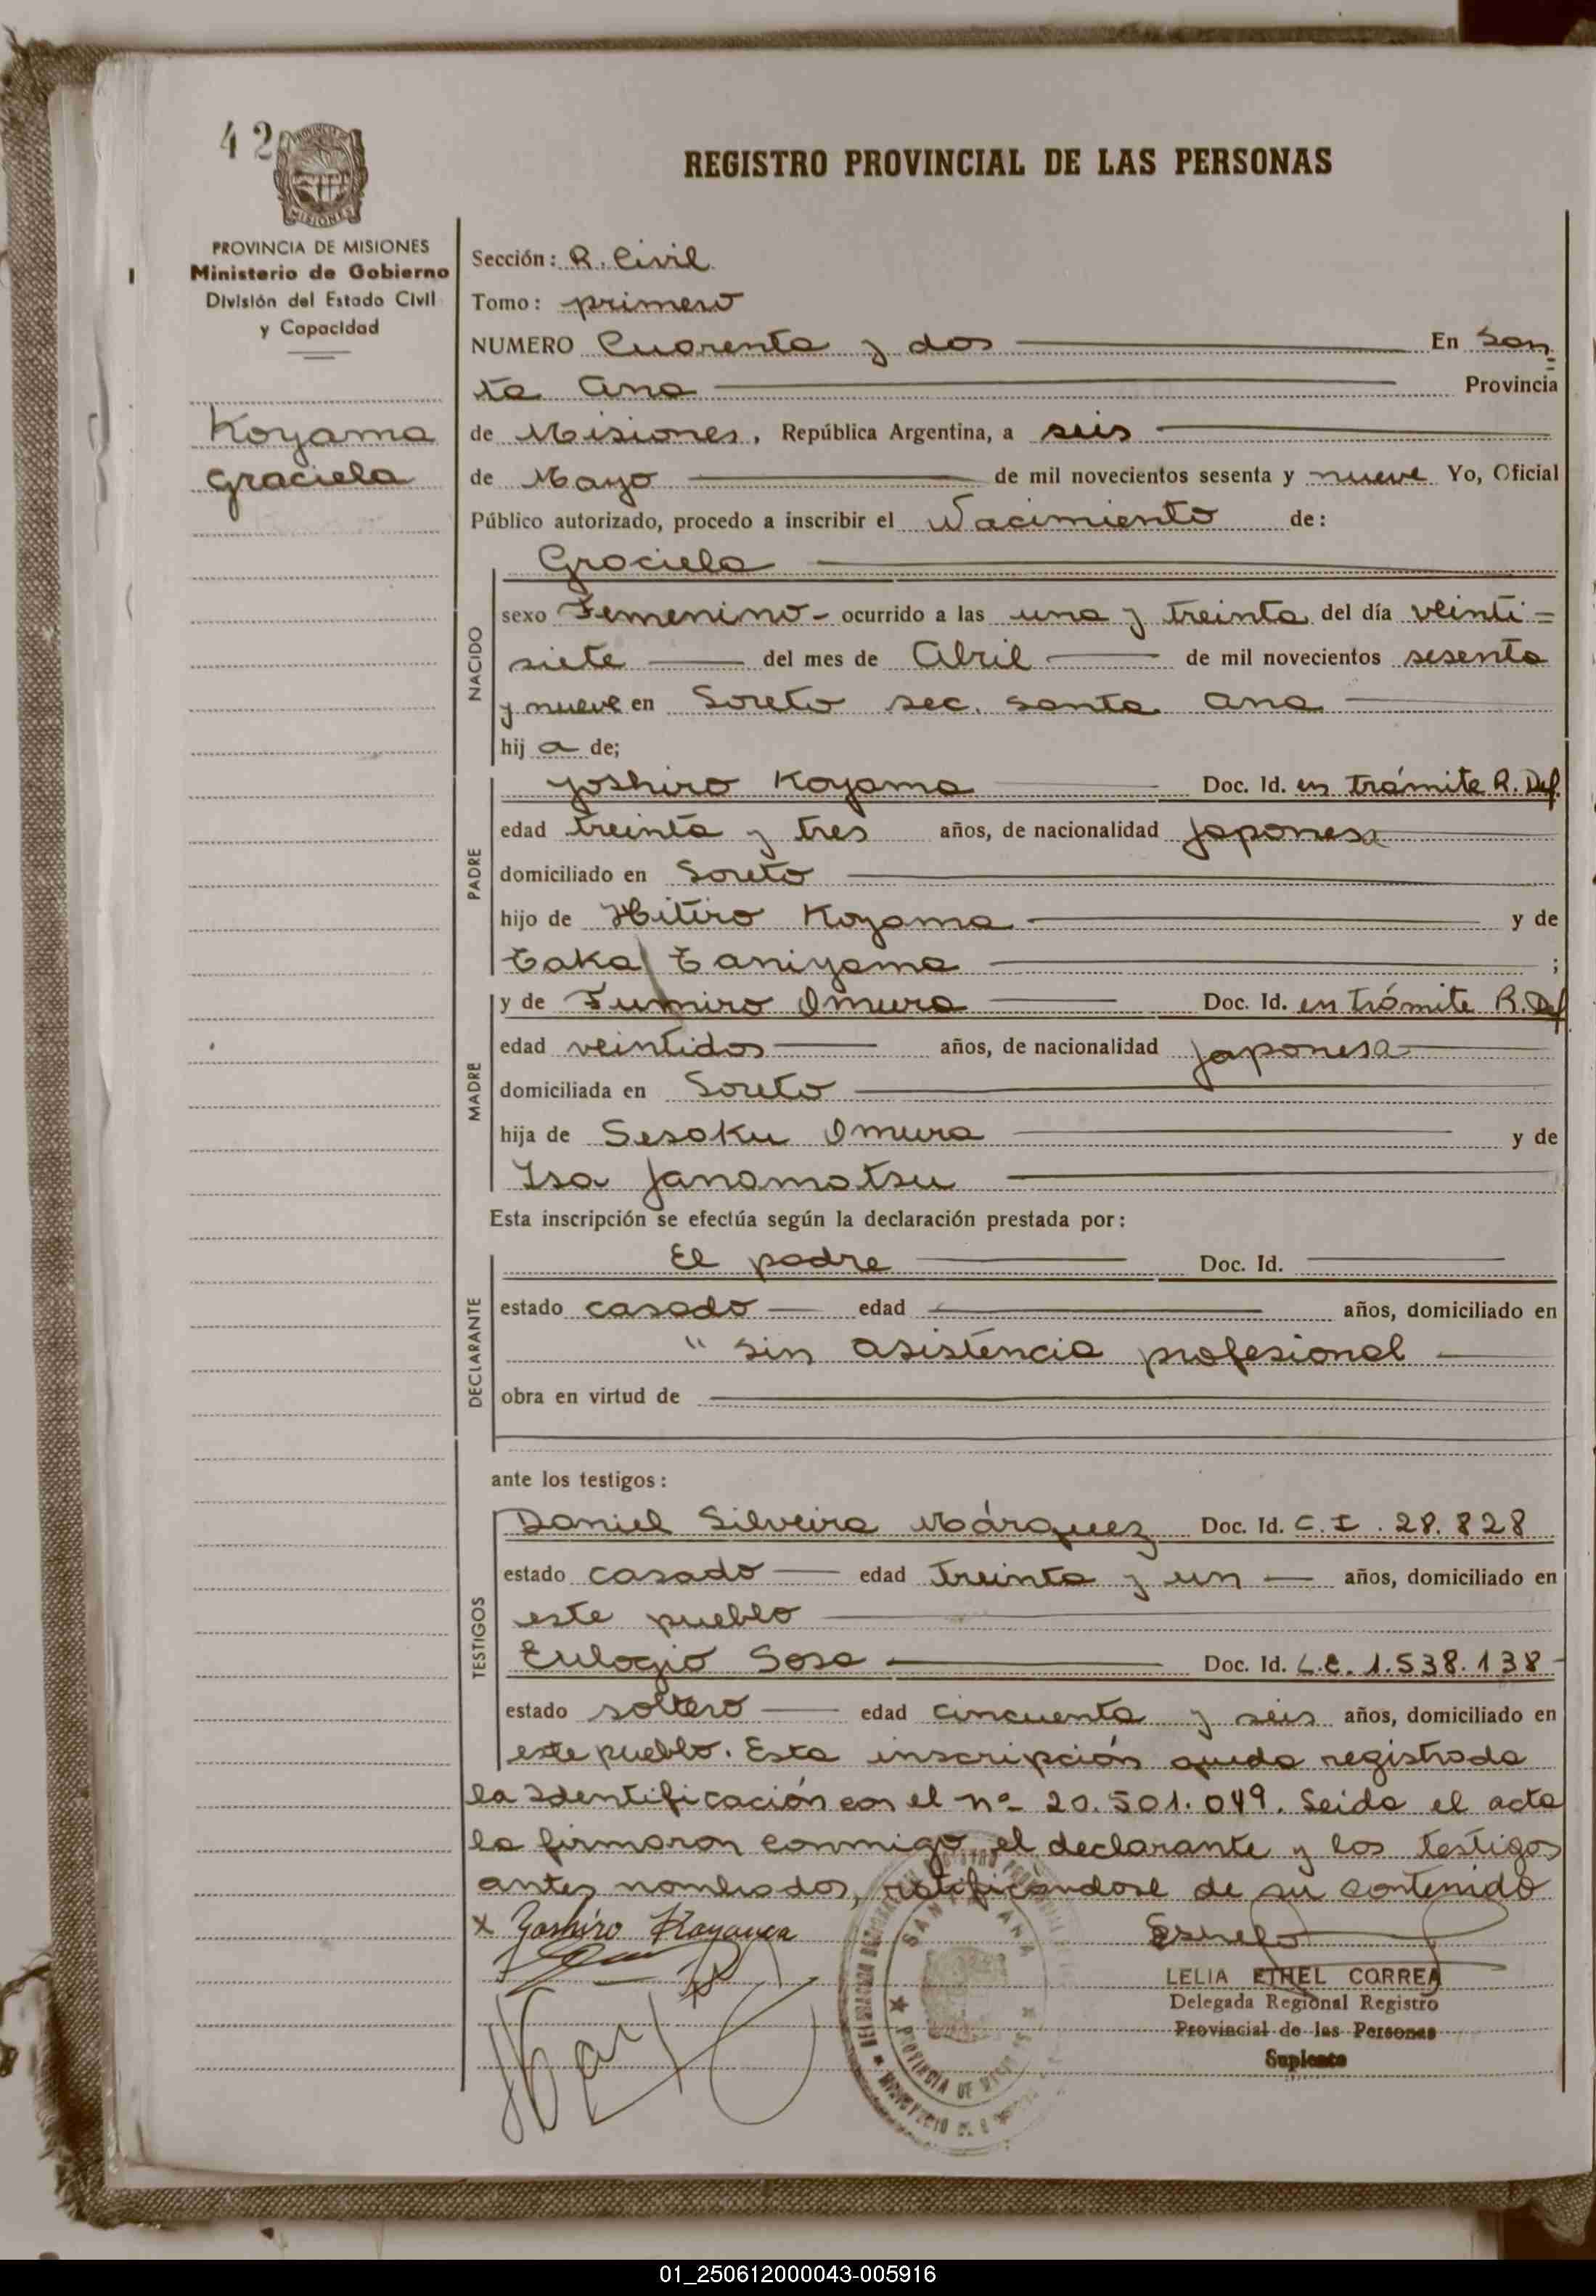 42
PROVINCIA DE MISIONES
Ministerio de Gobierno
División del Estado Civil
y Capacidad
Koyama
Graciela
REGISTRO PROVINCIAL DE LAS PERSONAS
Sección: R. Civil
Tomo: primero
NUMERO Cuarenta y dos En San=
ta Ana Provincia
de Misiones, República Argentina, a seis
de Mayo de mil novecientos sesenta y nueve Yo, Oficial
Público autorizado, procedo a inscribir el Nacimiento de:
Graciela
NACIDO
sexo Femenino - ocurrido a las una y treinta del día veinti=
siete del mes de Abril de mil novecientos sesenta
y nueve en Loreto sec. santa Ana
hij a de;
PADRE
Yoshiro Koyama Doc. Id. en trámite R. Def.
edad treinta y tres años, de nacionalidad japonesa
domiciliado en Loreto
hijo de Hitiro Koyama y de
Taka Taniyama ;
MADRE
y de Fumiro Omura Doc. Id. en trámite R. Def
edad veintidos años, de nacionalidad japonesa
domiciliada en Loreto
hija de Sesoku Omura y de
Isa Janamatsu
Esta inscripción se efectúa según la declaración prestada por:
DECLARANTE
El padre Doc. Id.
estado casado edad años, domiciliado en
" sin asistencia profesional
obra en virtud de
ante los testigos:
TESTIGOS
Daniel Silveira Márquez Doc. Id. C. I. 28.828
estado casado edad treinta y un años, domiciliado en
este pueblo
Eulogio Sosa Doc. Id. L.E. 1.538.138
estado soltero edad cincuenta y seis años, domiciliado en
este pueblo. Esta inscripción queda registrada
la Identificación con el nº 20.501.049. Leida el acta
la firmaron conmigo el declarante y los testigos
antes nombrados, ratificándose de su contenido
x Yoshiro Koyama
SANTA ANA
PROVINCIA DE MISIONES
LELIA ETHEL CORREA
Delegada Regional Registro
Provincial de las Personas
Suplente
01_250612000043-005916